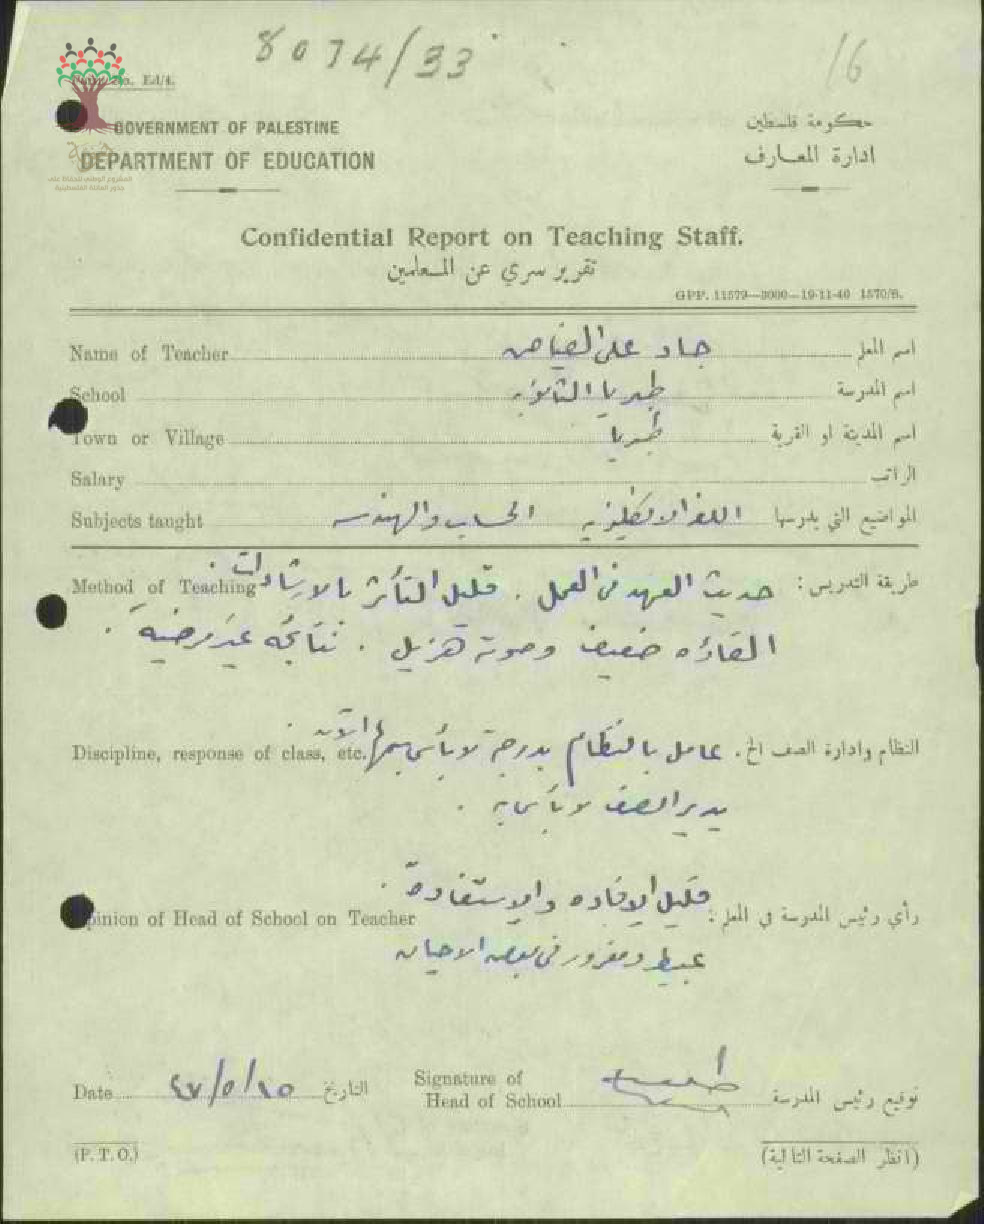 8074/33
16
Form No. Ed/4.
GOVERNMENT OF PALESTINE
حكومة فلسطين
DEPARTMENT OF EDUCATION
ادارة المعارف
المشروع الوطني للحفاظ على
جذور العائلة الفلسطينية
Confidential Report on Teaching Staff.
تقرير سري عن المعلمين
GPP. 11579—3000—19-11-40 1570/S.
Name of Teacher جاد علي اسم المعلم
School طبريا الثانويه اسم المدرسة
Town or Village طبريا اسم المدينة او القرية
Salary الراتب
Subjects taught اللغة الانكليزيه الحساب والهندسه المواضيع التي يدرسها
Method of Teaching حديث العهد في العمل . قليل التأثر بالارشادات . طريقة التدريس :
القاؤه ضعيف وصوته هزيل . نتائجه غير مرضية .
Discipline, response of class, etc. عامل بالنظام بدرجة لا بأس بها الآن . النظام وادارة الصف الخ .
يدير الصف لا بأس به .
Opinion of Head of School on Teacher قليل الافاده والاستفادة . رأي رئيس المدرسة في المعلم :
عبيط ومغرور في بعض الاحيان
Date ٤٧/٥/١٥ التاريخ
Signature of
Head of School توقيع رئيس المدرسة
(P. T. O.) (انظر الصفحة التالية)